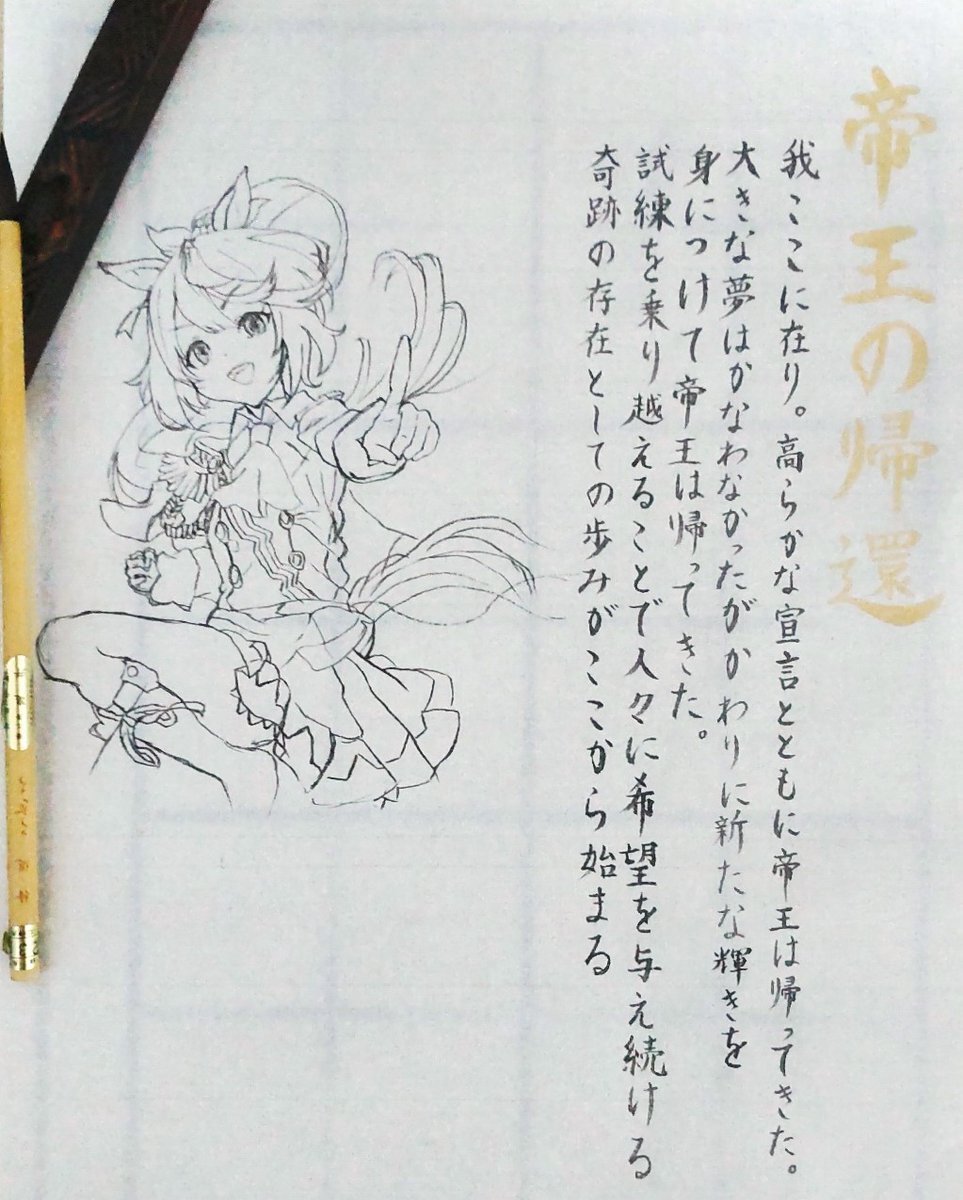 帝王の帰還
我ここに在り。高らかな宣言とともに帝王は帰ってきた。
大きな夢はかなわなかったがかわりに新たな輝きを
身につけて帝王は帰ってきた。
試練を乗り越えることで人々に希望を与え続ける
奇跡の存在としての歩みがここから始まる